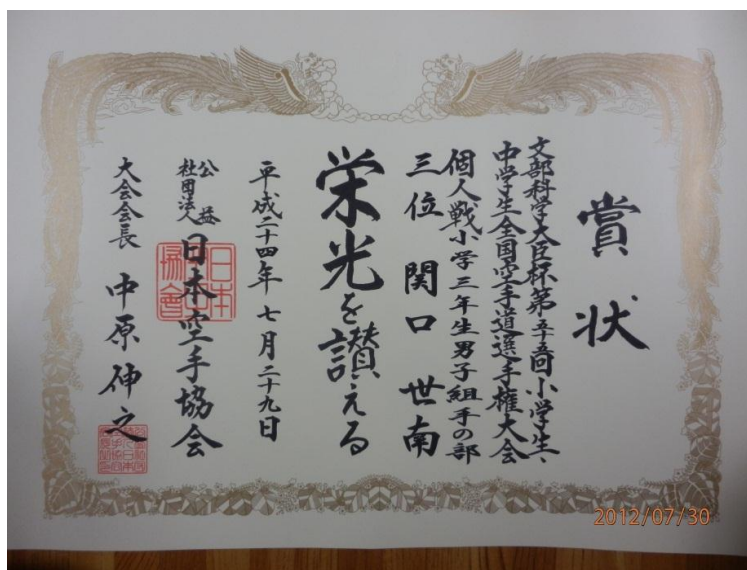 賞状
文部科学大臣杯第五十五回小学生、
中学生全国空手道選手権大会
個人戦小学三年生男子組手の部
三位 関口 世南
栄光を讃える
平成二十四年七月二十九日
公益
社団法人
日本空手協会
大会会長 中原伸之
2012/07/30